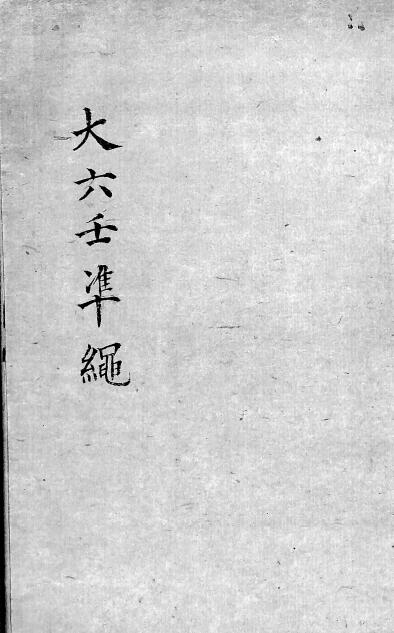 大六壬凖繩